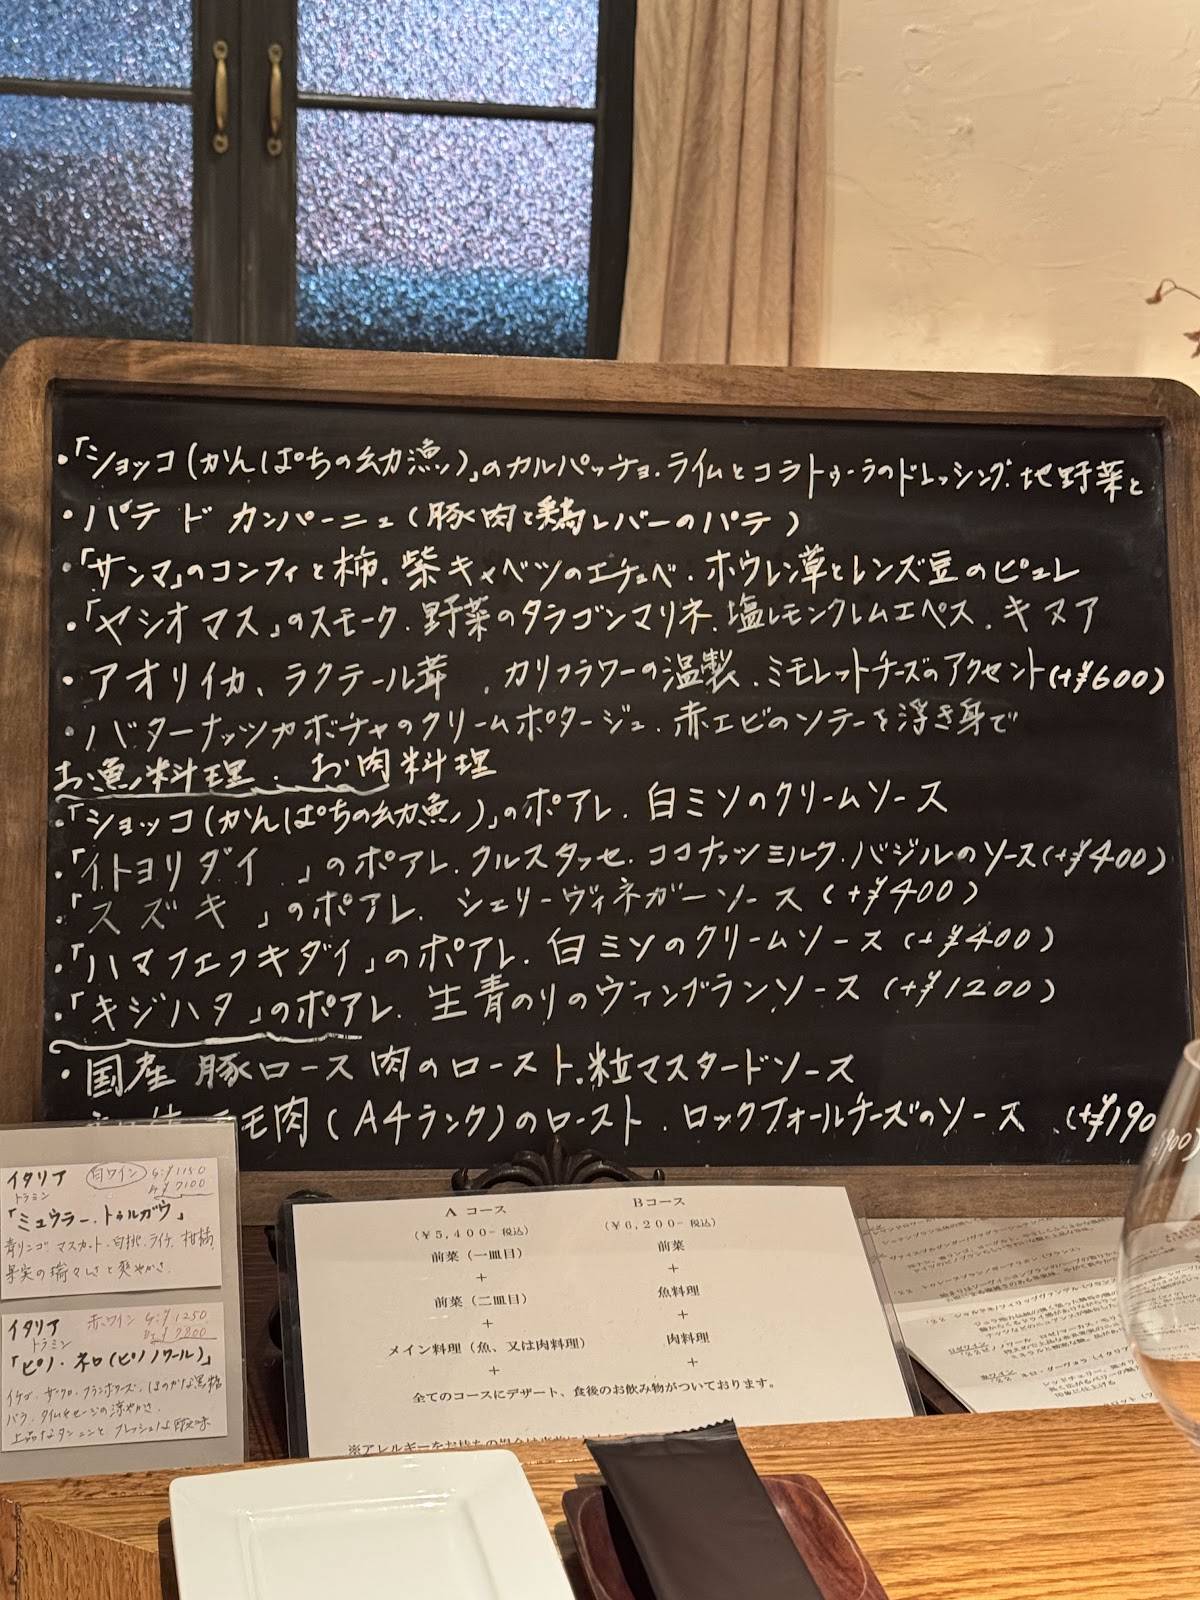 ・「ショッコ(かんぱちの幼漁)」のカルパッチョ.ライムとコラトゥーラのドレッシング.地野菜と
・パテ ド カンパーニュ(豚肉と鶏レバーのパテ)
・「サンマ」のコンフィと柿.紫キャベツのエチュベ.ホウレン草とレンズ豆のピュレ
・「ヤシオマス」のスモーク.野菜のタラゴンマリネ.塩レモンクレムエペス.キヌア
・アオリイカ、ラクテール茸.カリフラワーの温製.ミモレットチーズのアクセント(+¥600)
・バターナッツカボチャのクリームポタージュ.赤エビのソテーを浮き身で
お魚料理.お肉料理
・「ショッコ(かんぱちの幼魚)」のポアレ.白ミソのクリームソース
・「イトヨリダイ」のポアレ.クルスタッセ.ココナッツミルク.バジルのソース(+¥400)
・「スズキ」のポアレ.シェリーヴィネガーソース(+¥400)
・「ハマフエフキダイ」のポアレ.白ミソのクリームソース(+¥400)
・「キジハタ」のポアレ.生青のりのヴァンブランソース(+¥1200)
・国産 豚ロース肉のロースト.粒マスタードソース
モモ肉(A4ランク)のロースト.ロックフォールチーズのソース(+¥190
イタリア 白ワイン G:¥1150
トラミン ¥7100
「ミュウラー.トゥルガウ」
青リンゴ.マスカット.白桃.ライチ.柑橘.
果実の瑞々しさと爽やかさ.
イタリア 赤ワイン G:¥1250
トラミン ¥7800
「ピノ・ネロ(ピノノワール)」
イチゴ.ザクロ.フランボワーズ.ほのかな黒糖
バラ.タイムやセージの涼やかさ.
上品なタンニンとフレッシュな酸味
A コース
(¥5,400-税込)
前菜(一皿目)
+
前菜(二皿目)
+
メイン料理(魚、又は肉料理)
+
Bコース
(¥6,200-税込)
前菜
+
魚料理
+
肉料理
+
全てのコースにデザート、食後のお飲み物がついております。
※アレルギーをお持ちの